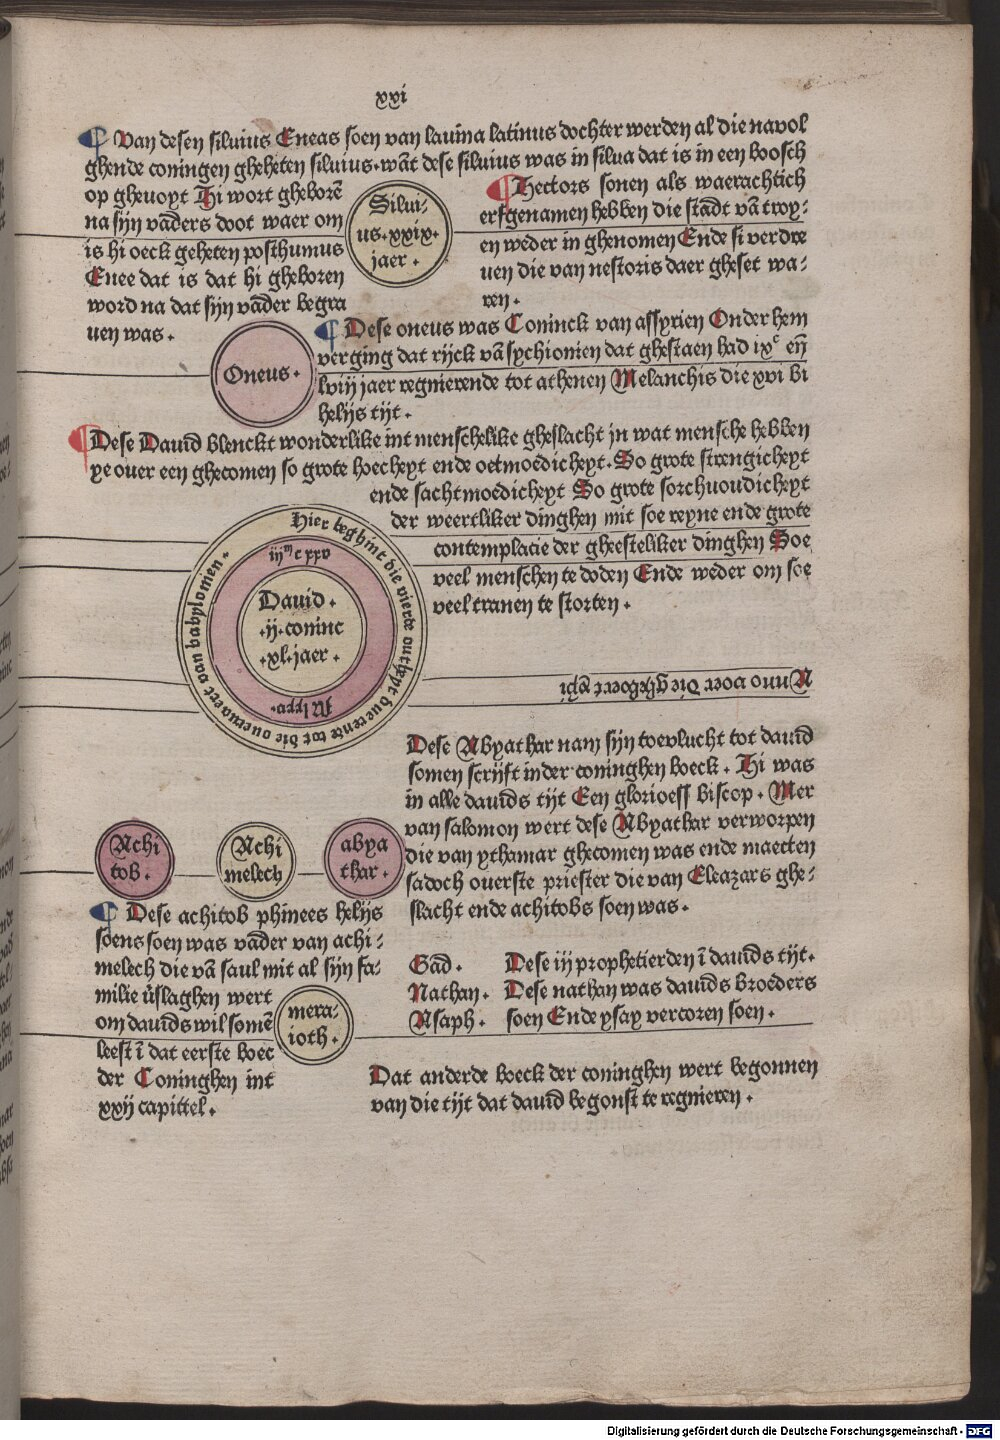 xxi
¶ Van desen siluius Eneas soen van lauina latinus dochter werden al die navol
ghende coningen gheheten siluius. wāt dese siluius was in silua dat is in een boosch
op gheuoyt Hi wort gheborē
na sijn vāders doot waer om
is hi oeck geheten posthumus
Enee dat is dat hi gheboren
word na dat sijn vāder begra
uen was.
Silui-
us. xxix.
jaer.
¶ Hectors sonen als waerachtich
erfgenamen hebben die stādt vā troy-
en weder in ghenomen Ende si verdre
uen die van nestoris daer gheset wa-
ren.
Oneus.
¶ Dese oneus was Coninck van assyrien Onder hem
verging dat rijck vā sychionien dat ghestaen had ixᶜ eñ
lviij jaer regnierende tot athenen Melanchis die xvi bi
helijs tijt.
¶ Dese Dauid blenckt wonderlike int menschelike gheslacht jn wat mensche hebben
ye ouer een ghecomen so grote hoecheyt ende oetmoedicheyt. So grote strengicheyt
ende sachtmoedicheyt So grote sorchuoudicheyt
der weertliker dinghen mit soe reyne ende grote
contemplacie der gheesteliker dinghen Soe
veel menschen te doden Ende weder om soe
veel tranen te storten.
Hier beghint die vierde outheyt duerente tot die ouervaert van babylomen.
iijᵐ c xxv
Dauid.
.ij. coninc
.xl. jaer.
Anno voer die gheboert xp̄i
Dese Abyathar nam sijn toevlucht tot dauid
somen scrijft in der coninghen boeck. Hi was
in alle dauids tijt Een glorioess biscop. Mer
van salomon wert dese Abyathar verworpen
die van ythamar ghecomen was ende maecten
sadoch ouerste priester die van Eleazars ghe-
slacht ende achitobs soen was.
Achi
tob.
Achi
melech
abya
thar.
¶ Dese achitob phinees helijs
soens soen was vāder van achi-
melech die vā saul mit al sijn fa-
milie v̄slaghen wert
om dauids wil somē
leest ī dat eerste boec
der Coninghen int
xxij capittel.
mera-
ioth.
Gad. Dese iij prophetierden ī dauids tijt.
Nathan. Dese nathan was dauids broeders
Asaph. soen Ende ysay vercoren soen.
Dat anderde boeck der coninghen wert begonnen
van die tijt dat dauid begonst te regnieren.
Digitalisierung gefördert durch die Deutsche Forschungsgemeinschaft - DFG